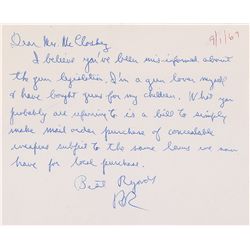 9/1/67
Dear Mr. McCloskey
I believe you've been mis-informed about
the gun legislation. I'm a gun lover myself
& have bought guns for my children. What you
probably are referring to is a bill to simply
make mail order purchase of concealable
weapons subject to the same laws we now
have for local purchase.
Best Regards
RR